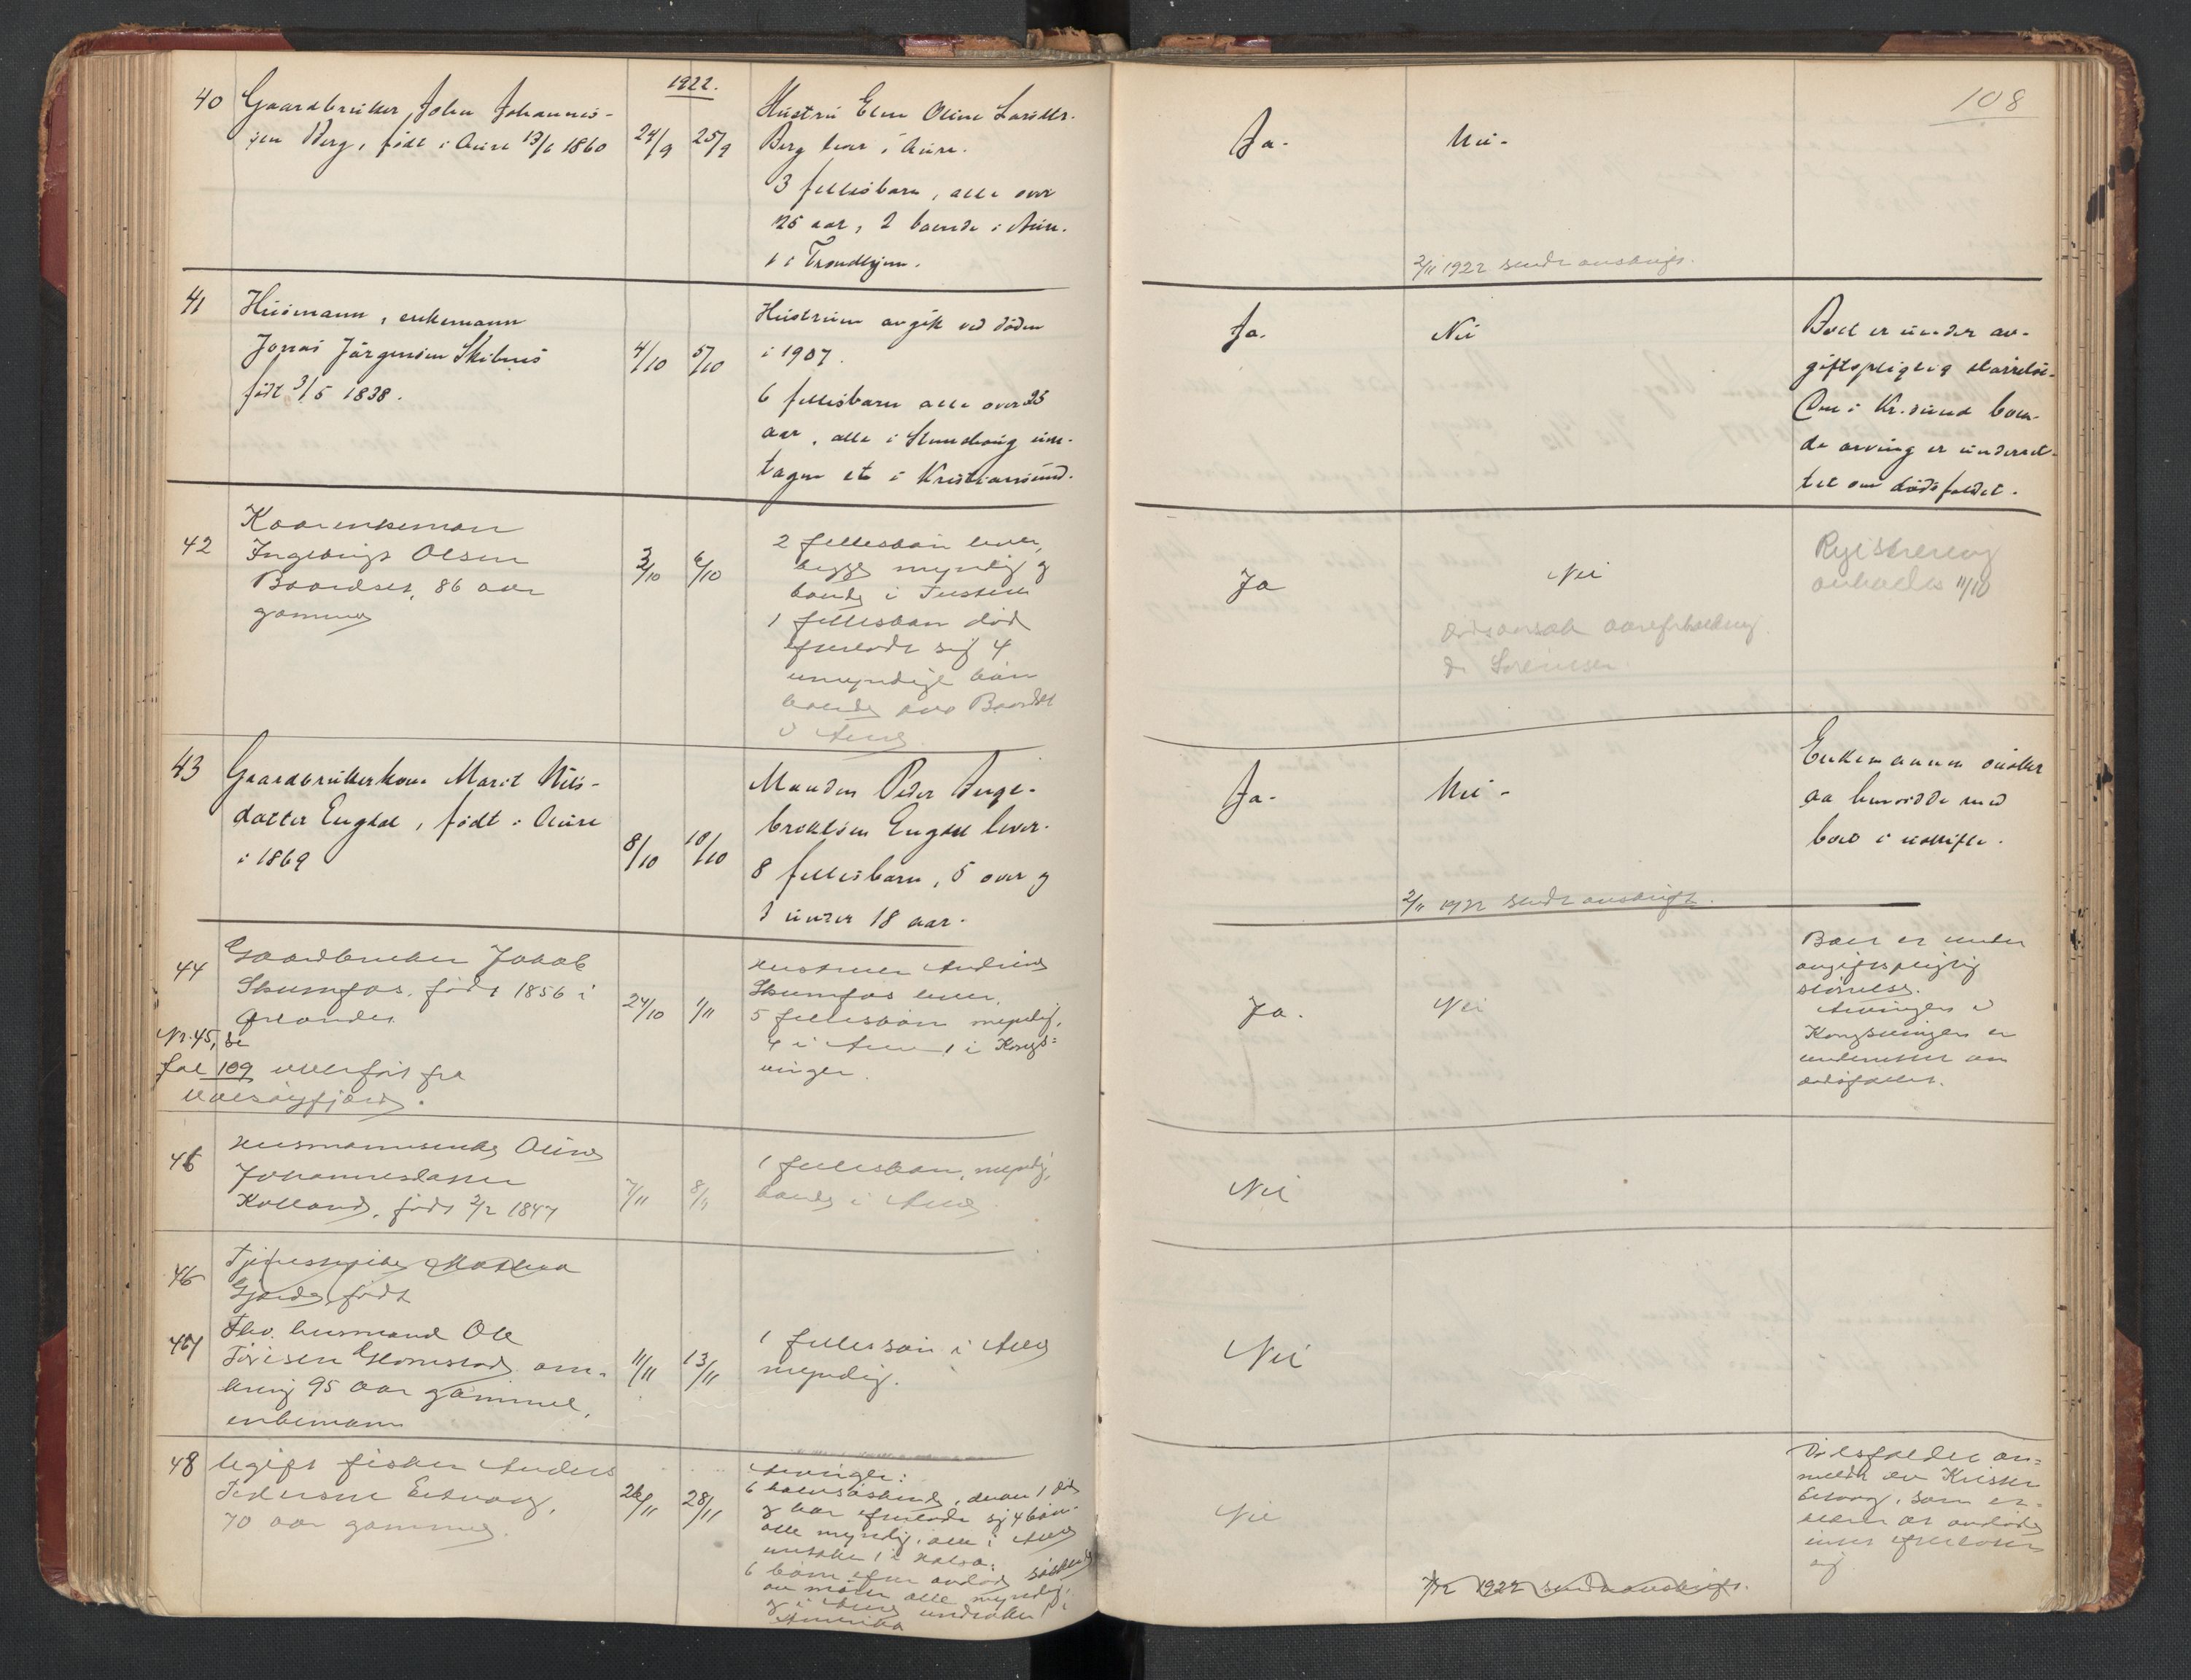 108
1922.
40 Gaardbruker John Johannes-
sen Berg, født i Aure 13/6 1860
24/9 25/9
Hustru Elen Oline Larsdtr.
Berg lever i Aure.
3 fellesbarn, alle over
25 aar, 2 boende i Aure.
1 i Trondhjem.
Ja-
Nei-
2/11 1922 sendt avskrift.
41 Husmann, enkemann
Jonas Jørgensen Skibnes
født 3/5 1838.
4/10 5/10
Hustruen avgik ved døden
i 1907.
6 fellesbarn alle over 25
aar, alle i Stemshaug unn-
tagen et i Kristiansund.
Ja.
Nei
Boet er under av-
giftspligtig størrelse.
Den i Kr.sund boen-
de arving er underret-
tet om dødsfaldet.
42 Kaarenkeman
Ingebrigt Olsen
Baardset, 86 aar
gammel
3/10 6/10
2 fellesbarn lever,
begge myndig og
boende i Tustern
1 fellesbarn død
efterlodt sig 4
umyndige barn
boende paa Baardset
i Aure.
Ja
Nei
Dødsaarsak aareforkalkning.
Dr Sørensen.
Registrering
anholdes 11/10
43 Gaardbrukerkone Marit Nils-
datter Engdal, født i Aure
i 1869
8/10 10/10
Manden Peder Inge-
brektsen Engdal lever.
8 fellesbarn, 5 over og
3 under 18 aar.
Ja-
Nei-
2/11 1922 sendt avskrift.
Enkemannen ønsker
aa hensidde med
boet i uskifte.
44 Gaardbruker Jakob
Skumfos, født 1856 i
Ørlandet
24/10 1/11
Hustruen Andrine
Skumfos lever.
5 fellesbarn myndig,
4 i Aure 1 i Kongs=
vinger.
Ja.
Nei
Boet er under
avgiftspligtig
størrelse.
Arvingen i
Kongsvinger er
underrettet om
dødsfallet.
Nr. 45, se
fol 109 overført fra
Valsøyfjord.
46 Husmannsenke Oline
Johannesdatter
Kolland, født 2/2 1847
7/11 8/11
1 fellesbarn, myndig,
boende i Aure.
Nei
46 Tjenestepike
Gjørde, født
47 Fhv. husmand Ole
Tørisen omkring 95 aar gammel,
enkemann
11/11 13/11
1 fellessøn i Aure
myndig.
Nei
48 Ugift fisker Anders
Pedersen
70 aar gammel.
26/11 28/11
Arvinger:
6 halvsøskende, derav 1 død
og har efterladt sig 4 barn
alle myndig, alle i Aure
untaken 1 i Halsa.
6 barn efter avdøde søskende
av moren alle myndig,
og i Aure undtaken 1 i
Amerika
Nei
7/12 1922 sendt avskrift.
Dødsfaldet an=
meldt av
som er=
klærer at avdøde
intet efterlater
sig